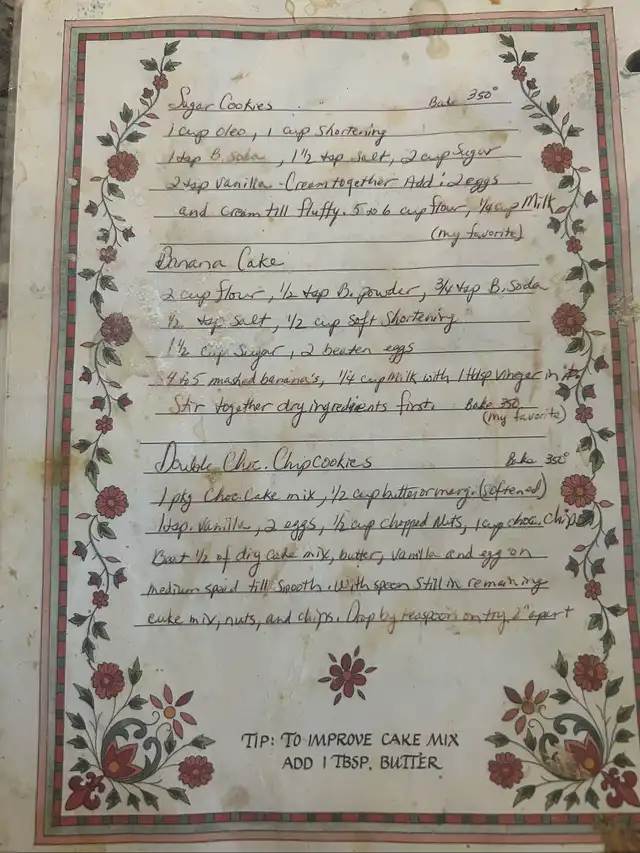 Sugar Cookies Bake 350°
1 cup oleo, 1 cup shortening
1 tsp B. soda, 1 1/2 tsp salt, 2 cup sugar
2 tsp vanilla - Cream together Add: 2 eggs
and cream till fluffy. 5 to 6 cup flour, 1/4 cup Milk
(my favorite)
Banana Cake
2 cup flour, 1/2 tsp B. powder, 3/4 tsp B. Soda
1/2 tsp salt, 1/2 cup soft shortening
1 1/2 cup sugar, 2 beaten eggs
4 to 5 mashed banana's, 1/4 cup Milk with 1 tbsp vinegar in it
Stir together dry ingredients first. Bake 350
(my favorite)
Double Choc. Chip cookies Bake 350°
1 pkg Choc. Cake mix, 1/2 cup butter or marg. (softened)
1 tsp. vanilla, 2 eggs, 1/2 cup chopped Nuts, 1 cup choc. chips
Beat 1/2 of dry cake mix, butter, vanilla and egg on
medium speed till smooth. With spoon Still in remaining
cake mix, nuts, and chips. Drop by teaspoon on try 2" apart
TIP: TO IMPROVE CAKE MIX
ADD 1 TBSP. BUTTER